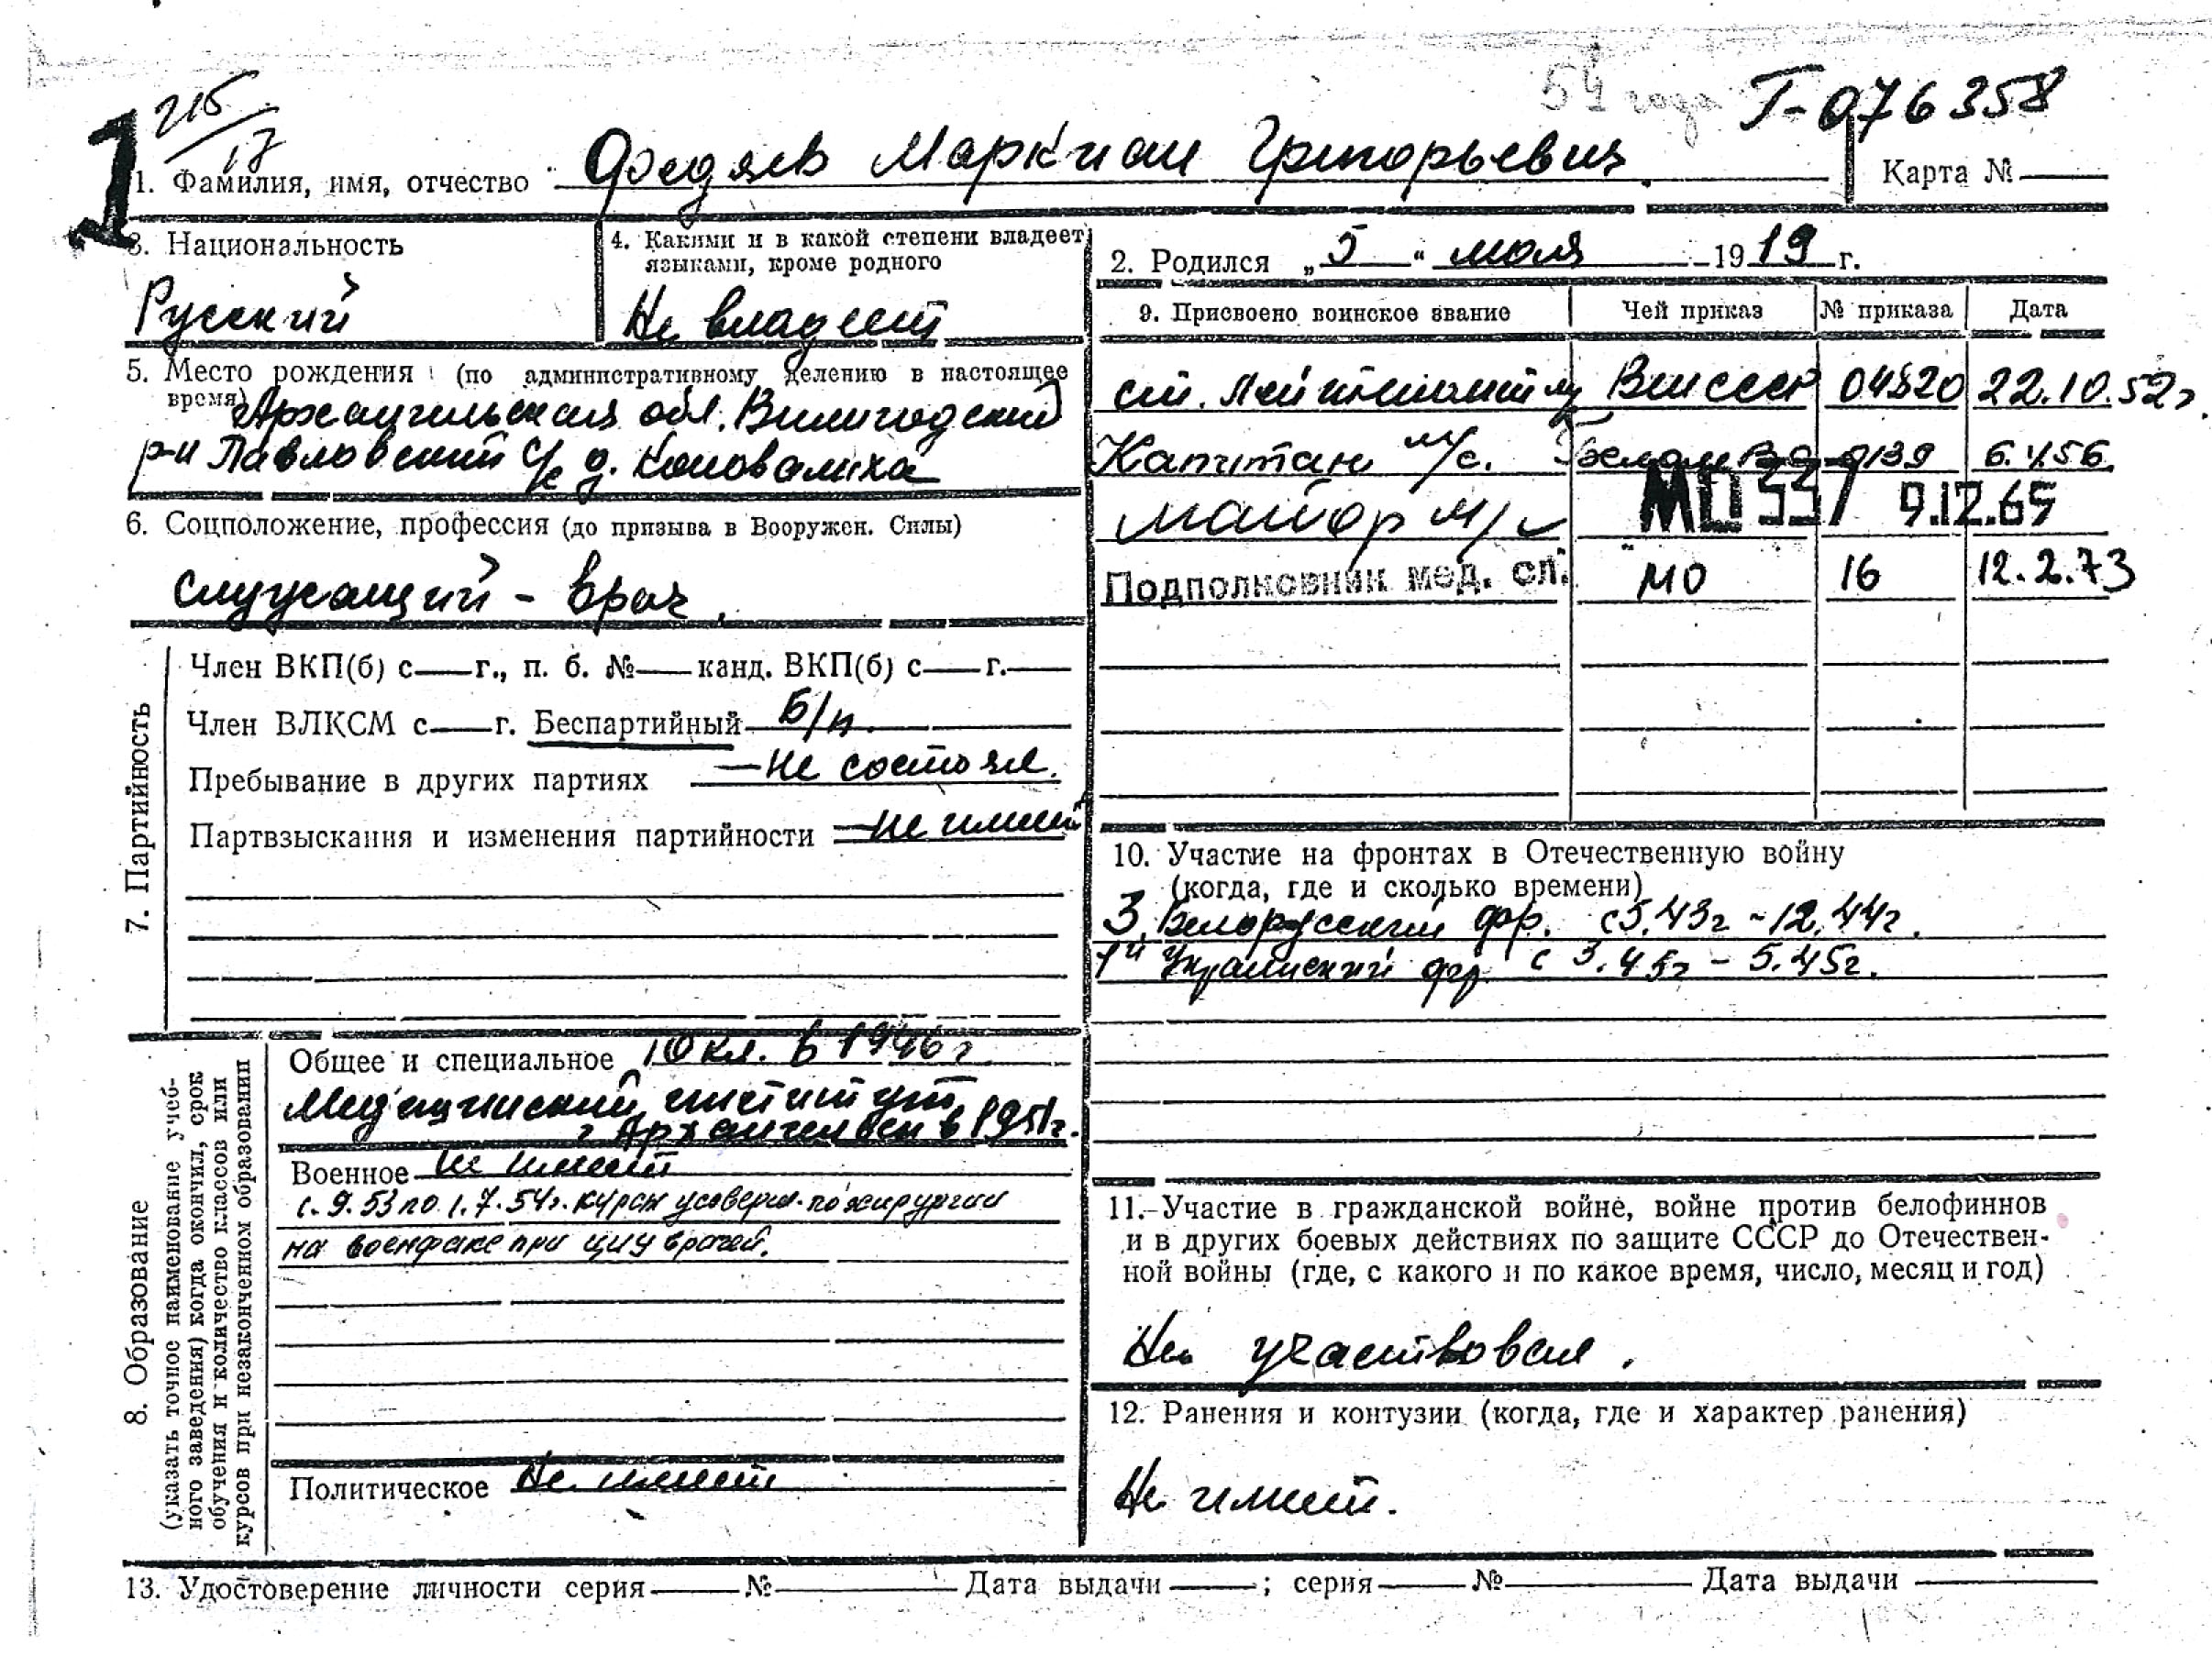 54 года Г-076358
1
215/17
1. Фамилия, имя, отчество Федяев Маркиан Григорьевич.
Карта №
3. Национальность
Русский
4. Какими и в какой степени владеет
языками, кроме родного
Не владеет
2. Родился „5“ мая 1919 г.
5. Место рождения (по административному делению в настоящее
время) Архангельская обл. Вилегодский
р-н Павловский с/с д. Коновалиха
6. Соцположение, профессия (до призыва в Вооружен. Силы)
Служащий - врач.
9. Присвоено воинское звание Чей приказ № приказа Дата
ст. Лейтенант м/с ВМ СССР 04520 22.10.52г.
Капитан м/с. 0139 6.4.56.
Майор м/с МО 337 9.12.65
Подполковник мед. сл. МО 16 12.2.73
7. Партийность
Член ВКП(б) с г., п. б. № канд. ВКП(б) с г.
Член ВЛКСМ с г. Беспартийный Б/п.
Пребывание в других партиях — не состоял.
Партвзыскания и изменения партийности — не имеет
10. Участие на фронтах в Отечественную войну
(когда, где и сколько времени)
3. Белорусский фр. с 5.43г - 12.44г.
1й Украинский фр. с 3.45г - 5.45г.
8. Образование
(указать точное наименование учеб-
ного заведения) когда окончил, срок
обучения и количество классов или
курсов при незаконченном образовании
Общее и специальное 10 кл. в 1946 г.
Медицинский институт
г Архангельск в 1951г.
Военное не имеет
с. 9. 53 по 1. 7. 54г. курсы усоверш. по хирургии
на военфаке при ЦИУ врачей.
Политическое Не имеет
11. Участие в гражданской войне, войне против белофиннов
и в других боевых действиях по защите СССР до Отечествен-
ной войны (где, с какого и по какое время, число, месяц и год)
Не участвовал.
12. Ранения и контузии (когда, где и характер ранения)
Не имеет.
13. Удостоверение личности серия № Дата выдачи ; серия № Дата выдачи